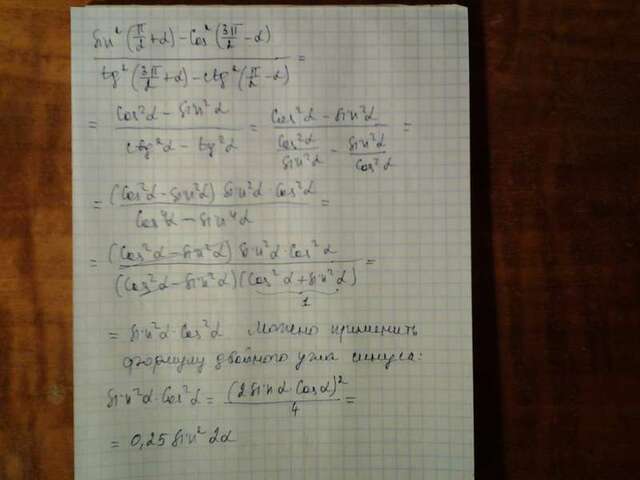 sin²(π/2 + α) − cos²(3π/2 − α)
tg²(3π/2 + α) − ctg²(π/2 − α) =
= cos²α − sin²α / ctg²α − tg²α = cos²α − sin²α / (cos²α/sin²α − sin²α/cos²α) =
= (cos²α − sin²α) sin²α · cos²α / cos⁴α − sin⁴α =
= (cos²α − sin²α) sin²α · cos²α / (cos²α − sin²α)(cos²α + sin²α) =
1
= sin²α · cos²α Можно применить
формулу двойного угла синуса:
sin²α · cos²α = (2 sinα · cosα)² / 4 =
= 0,25 sin² 2α